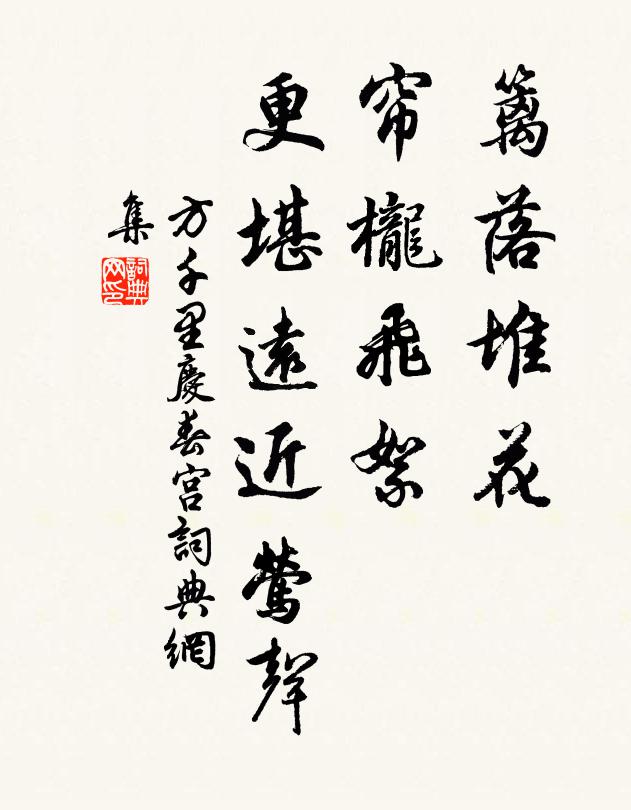 籬落堆花
帘櫳飛絮
更堪遠近鶯聲
方千里慶春宮詞典網
集
詞典
网印